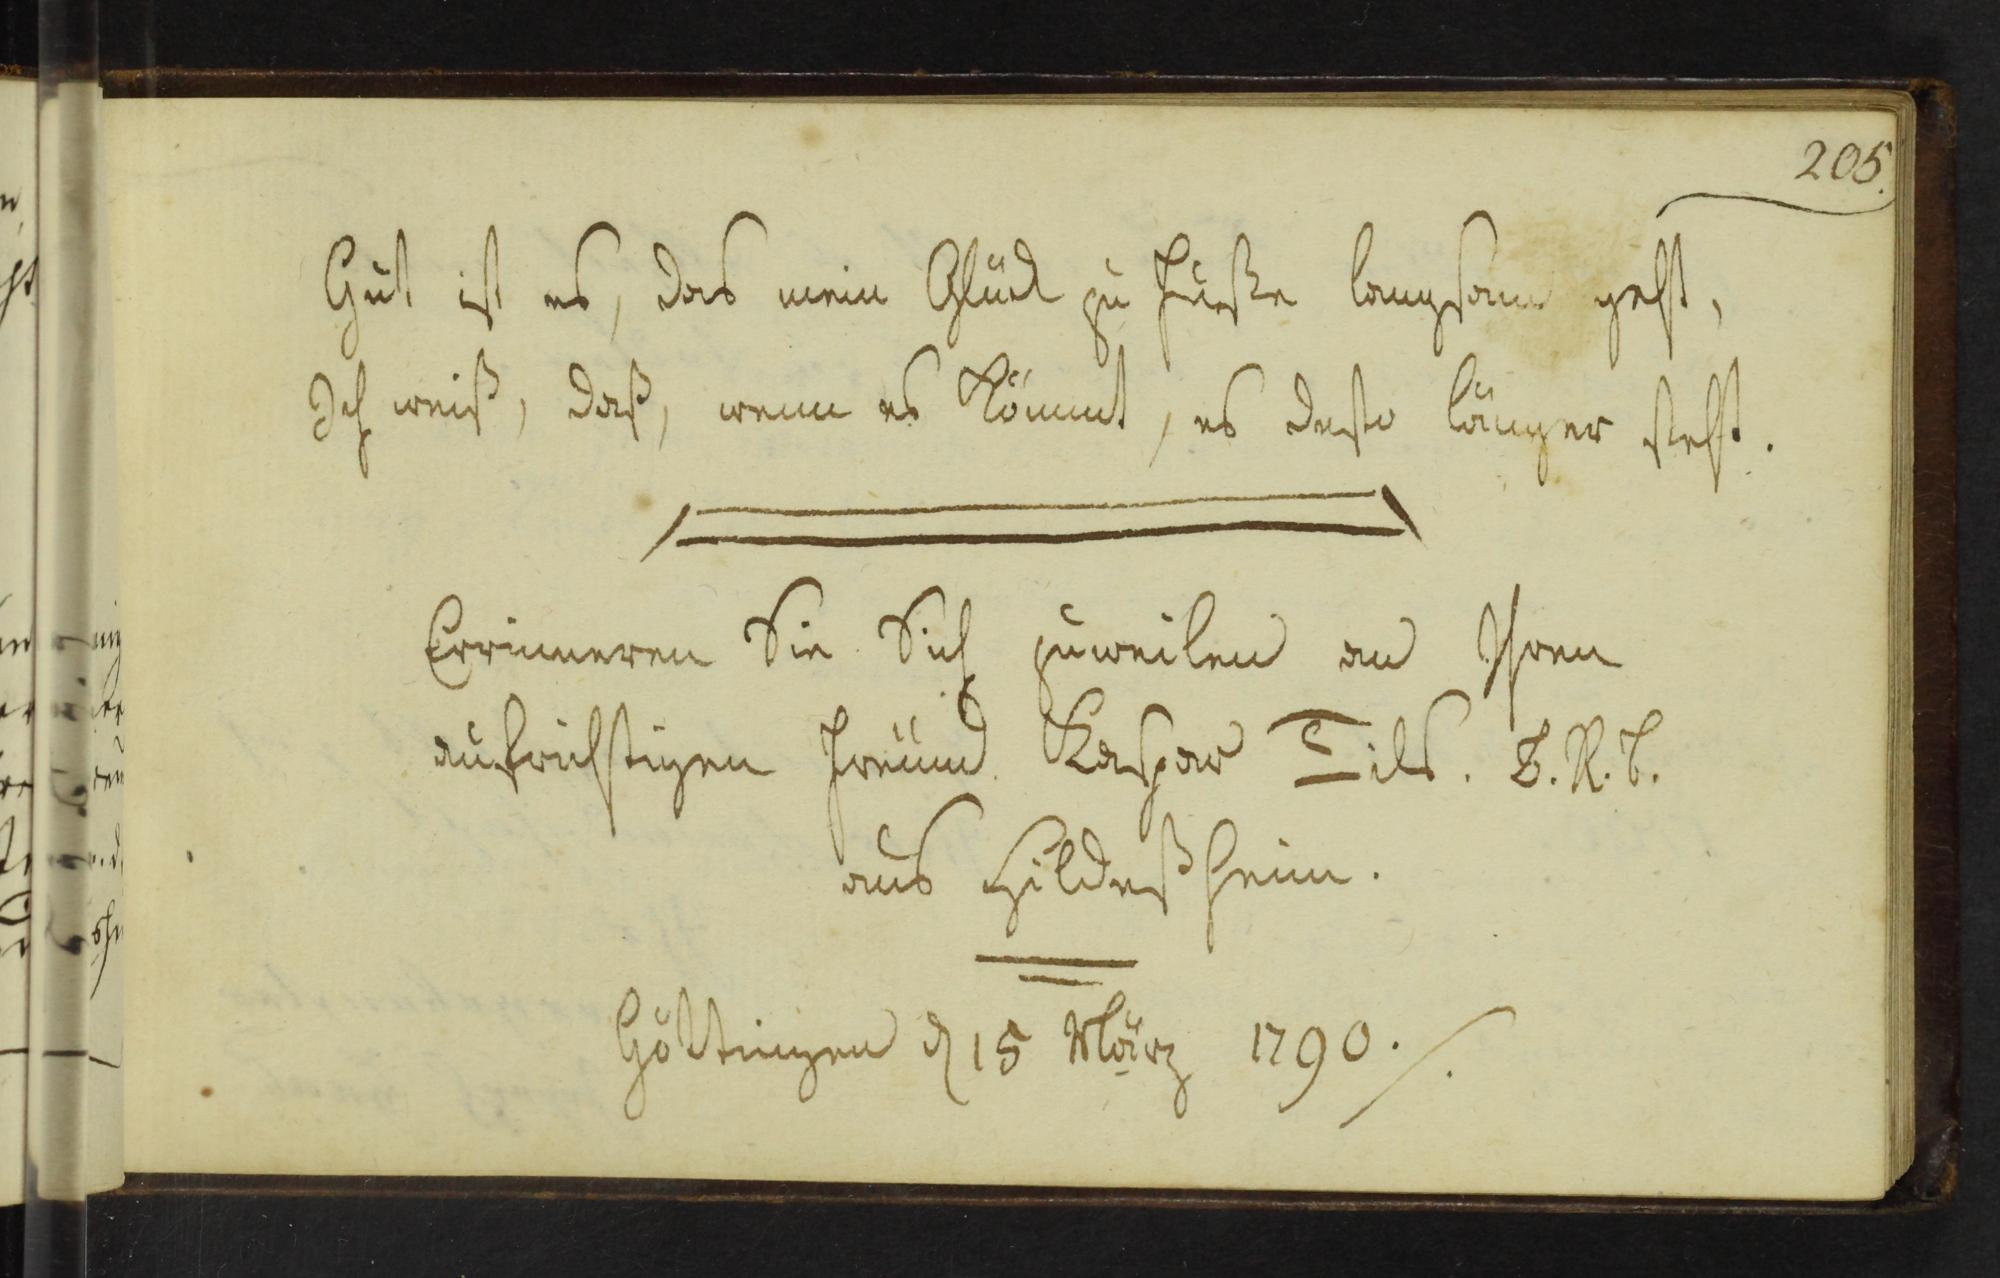 205.
Gut ist es, das mein Glück zu Fuße langsam geht,
Ich weiß, daß, wenn es kömmt, es desto länger steht.
Errinneren Sie Sich zuweilen an Ihren
aufrichtigen Freünd Kaspar Tils.
aus Hildeßheim.
Göttingen d 15 März 1790.